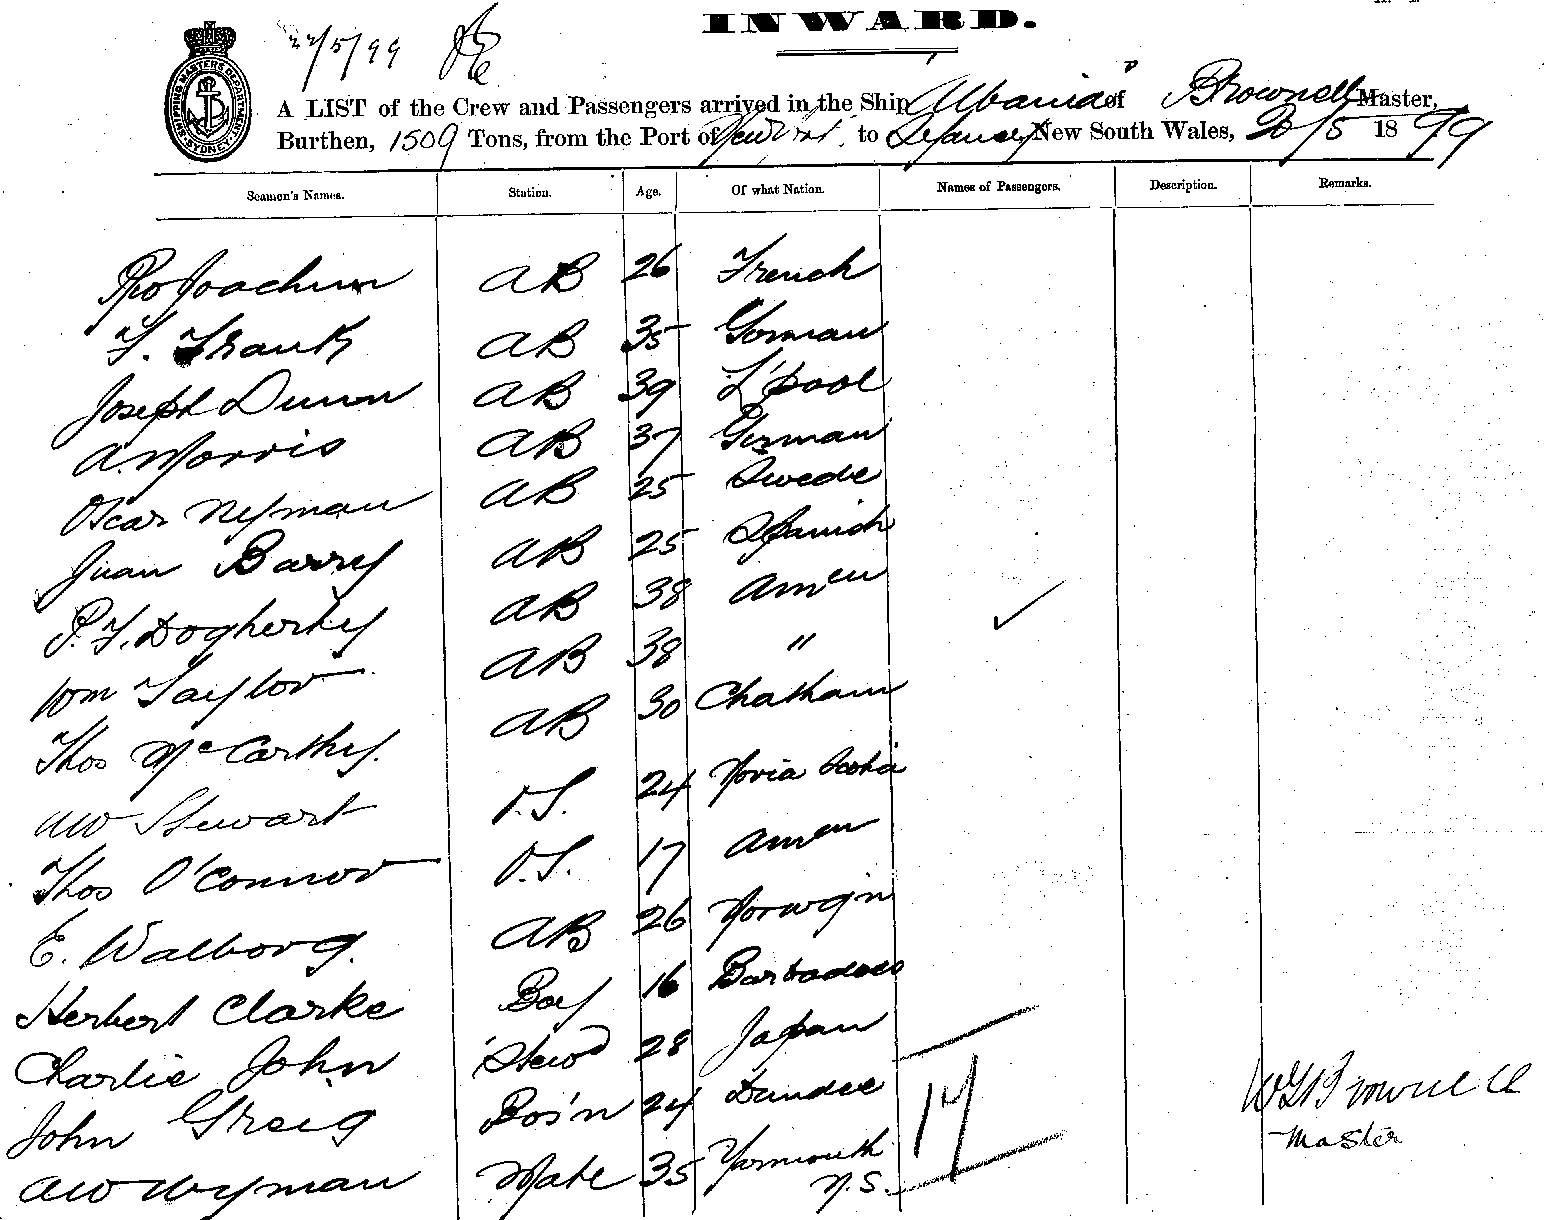 INWARD.
22/5/99
A LIST of the Crew and Passengers arrived in the Ship Albania of Brownell Master,
Burthen, 1509 Tons, from the Port of New York to Sydney New South Wales, 20/5 1899
SHIPPING MASTERS DEPARTMENT SYDNEY
Seamen's Names. Station. Age. Of what Nation. Names of Passengers. Description. Remarks.
Joachim AB 26 French
F. Frank AB 35 German
Joseph Dunn AB 39 L'pool
A. Morris AB 37 German
Oscar Nyman AB 25 Swede
Juan Barry AB 25 Spanish
P. F. Dogherty AB 38 Amen
Wm Taylor AB 38 "
Thos McCarthy. AB 30 Chatham
AW Stewart O.S. 24 Novia Scotia
Thos O'Connor O.S. 17 Amen
E. Walborg. AB 26 Norwgn
Herbert Clarke Boy 16 Barbadoes
Charlie John Stewd 28 Japan
John Greig Bos'n 24 Dundee
AW Wyman Mate 35 Yarmouth N.S.
17
WG Brownell
Master